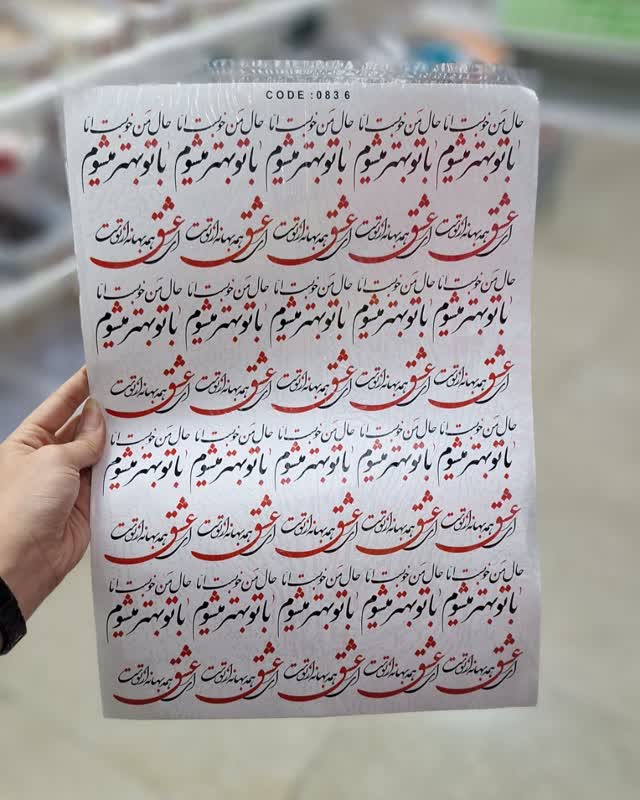 CODE :0836
حال من خوبست اما حال من خوبست اما حال من خوبست اما حال من خوبست اما حال من خوبست اما
با تو بهتر میشوم با تو بهتر میشوم با تو بهتر میشوم با تو بهتر میشوم با تو بهتر میشوم
ای عشق همه بهانه از توست ای عشق همه بهانه از توست ای عشق همه بهانه از توست ای عشق همه بهانه از توست ای عشق همه بهانه از توست
حال من خوبست اما حال من خوبست اما حال من خوبست اما حال من خوبست اما حال من خوبست اما
با تو بهتر میشوم با تو بهتر میشوم با تو بهتر میشوم با تو بهتر میشوم با تو بهتر میشوم
ای عشق همه بهانه از توست ای عشق همه بهانه از توست ای عشق همه بهانه از توست ای عشق همه بهانه از توست ای عشق همه بهانه از توست
حال من خوبست اما حال من خوبست اما حال من خوبست اما حال من خوبست اما حال من خوبست اما
با تو بهتر میشوم با تو بهتر میشوم با تو بهتر میشوم با تو بهتر میشوم با تو بهتر میشوم
ای عشق همه بهانه از توست ای عشق همه بهانه از توست ای عشق همه بهانه از توست ای عشق همه بهانه از توست ای عشق همه بهانه از توست
حال من خوبست اما حال من خوبست اما حال من خوبست اما حال من خوبست اما حال من خوبست اما
با تو بهتر میشوم با تو بهتر میشوم با تو بهتر میشوم با تو بهتر میشوم با تو بهتر میشوم
ای عشق همه بهانه از توست ای عشق همه بهانه از توست ای عشق همه بهانه از توست ای عشق همه بهانه از توست ای عشق همه بهانه از توست